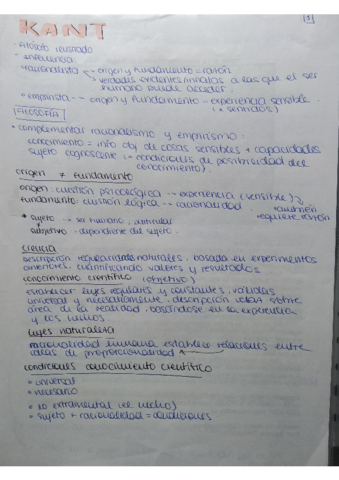 KANT
1
- Filósofo ilustrado
- influencia:
· racionalista -- origen y fundamento = razón
-- verdades evidentes/innatas a las que el ser
humano puede acceder.
· empirista -- origen y fundamento - experiencia sensible
(+ sentidos)
FILOSOFÍA
· complementa racionalismo y empirismo:
conocimiento = info obj de cosas sensibles + capacidades
sujeto cognoscente (- condiciones de posibilidad del
conocimiento).
origen ≠ fundamento
origen: cuestión psicológica -- experiencia (sensible)
fundamento: cuestión lógica -- racionalidad
también
requiere razón
* sujeto -- ser humano, particular
subjetivo - dependiente del sujeto
Ciencia
descripción regularidades naturales, basada en experimentos
anteriores, cuantificando valores y resultados
conocimiento científico (objetivo)
establecer leyes regulares y constantes, válidas
universal y necesariamente - descripción sobre
área de la realidad, basándose en su experiencia
y los mismos.
leyes naturaleza
racionalidad humana establece relaciones entre
ideas de proporcionalidad
condiciones conocimiento científico
• universal
• necesario
• no extramental (el mismo)
• sujeto + racionalidad = condiciones